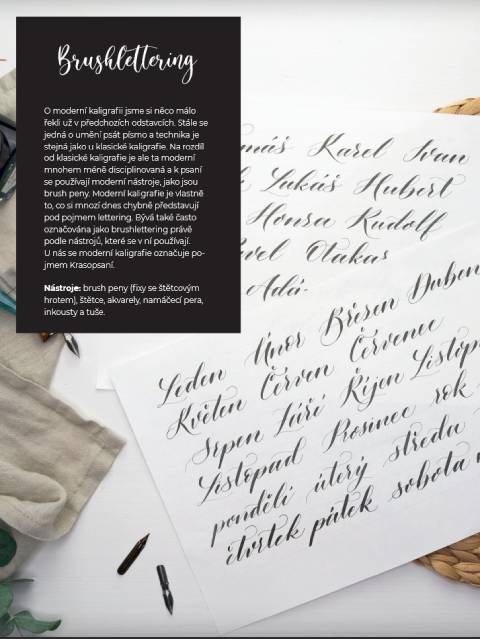 Brushlettering
O moderní kaligrafii jsme si něco málo
řekli už v předchozích odstavcích. Stále se
jedná o umění psát písmo a technika je
stejná jako u klasické kaligrafie. Na rozdíl
od klasické kaligrafie je ale ta moderní
mnohem méně disciplinovaná a k psaní
se používají moderní nástroje, jako jsou
brush peny. Moderní kaligrafie je vlastně
to, co si mnozí dnes chybně představují
pod pojmem lettering. Bývá také často
označována jako brushlettering právě
podle nástrojů, které se v ní používají.
U nás se moderní kaligrafie označuje po-
jmem Krasopsaní.
Nástroje: brush peny (fixy se štětcovým
hrotem), štětce, akvarely, namáčecí pera,
inkousty a tuše.
Karel Ivan
Lukáš Hubert
Honza Rudolf
Otakar
Leden Únor Březen Duben
Květen Červen Červenec
Srpen Září Říjen Listop
Listopad Prosinec rok
pondělí úterý středa
čtvrtek pátek sobota